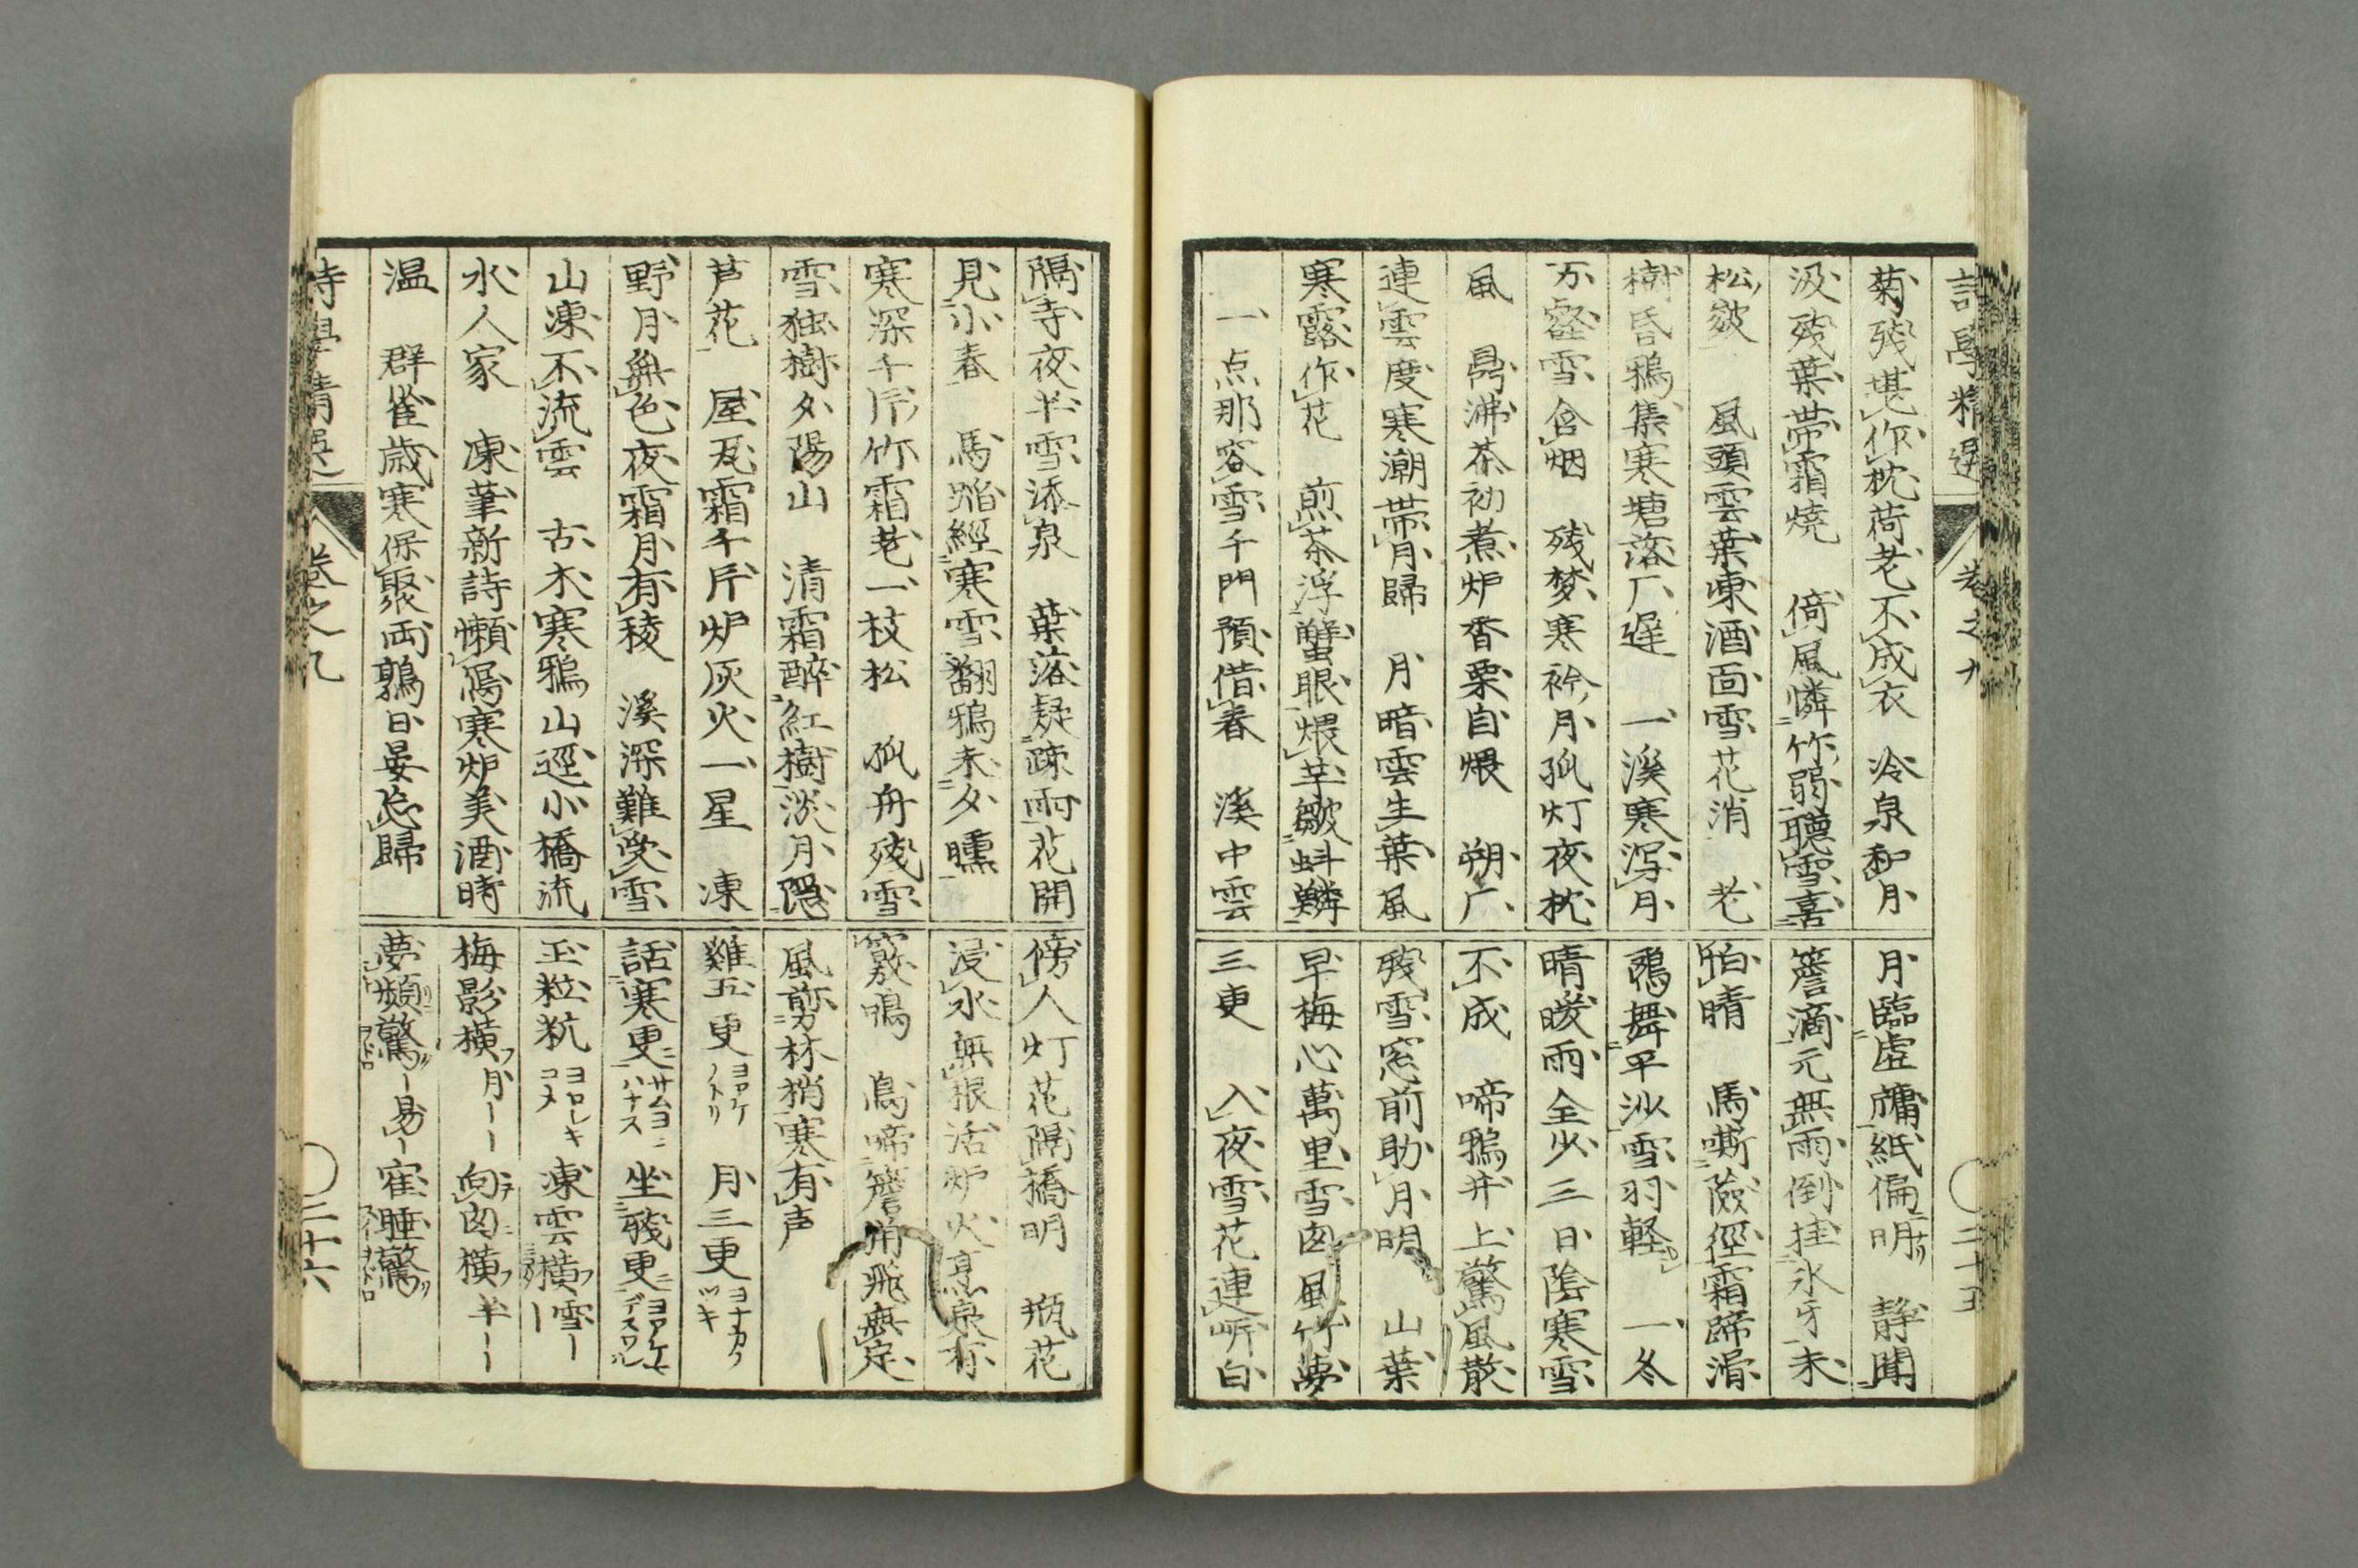 詩學精選 卷之九 二十五
菊殘堪作枕荷老不成衣 冷泉和月
汲殘葉帶霜燒 倚風憐竹弱聽雪喜
松皴 風頭雲葉凍酒面雪花消 老
樹昏鴉集寒塘落厂遲 一溪寒瀉月
万壑雪含烟 残梦寒衾月孤灯夜枕
風 鼎沸茶初煮炉香栗自煨 朔厂
連雲度寒潮帶月歸 月暗雲生葉風
寒露作花 煎茶浮蟹眼煨芋皺蚪鱗
一点那容雪千門預借春 溪中雲
月臨虛牖紙偏明 靜聞
簷滴元無雨倒挂氷牙未
怕晴 馬嘶險徑霜蹄滑
鴉舞平沙雪羽軽 一冬
晴暖雨全少三日陰寒雪
不成 啼鴉井上驚風散
残雪窓前助月明 山葉
早梅心萬里雪囱風竹夢
三更 入夜雪花連岍白
隔寺夜半雪添泉 葉落疑疎雨花開
見小春 馬蹈經寒雪翻鴉未夕曛
寒深千斤竹霜老一枝松 孤舟殘雪
雪独樹夕陽山 清霜醉紅樹淡月隱
芦花 屋瓦霜千斤炉灰火一星 凍
野月無色夜霜月有稜 溪深難受雪
山凍不流雲 古木寒鴉山逕小橋流
水人家 凍筆新詩懶寫寒炉美酒時
温 群雀歳寒保聚両鶉日晏忘歸
傍人灯花隔橋明 瓶花
浸水無根活炉火烹泉有
竅鳴 鳥啼簷角飛無定
風剪林梢寒有声
雞五更ヨアケノトリ 月三更ヨナカノツキ
話寒更サムヨニハナス 坐殘更ヨアケニデスワル
玉粒秔ヨロシキコメ 凍雲横雪ー
梅影横月ーー 向囱横半ーー
夢頻驚ー易ー 寉睡驚
詩學精選 卷之九 二十六